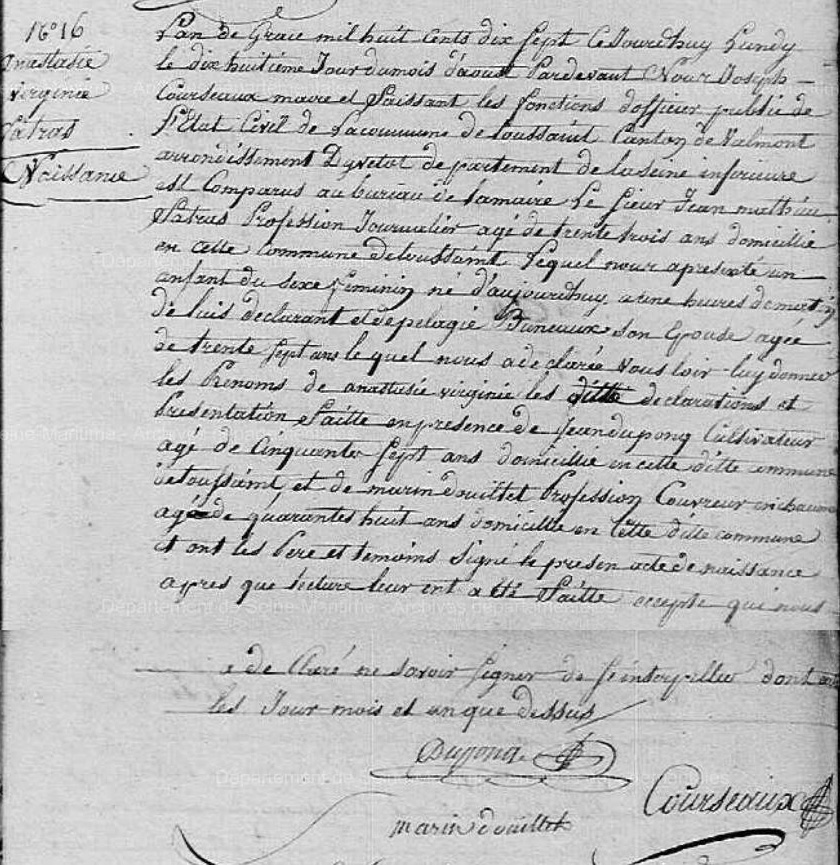 N° 16
anastasie
virginie
Patras
Naissance
Lan de Grace mil huit Cents dix Sept Ce Jourdhuy Lundy
le dix huitieme Jour dumois daoust Pardevant Nous Joseph
Courseaux maire et faissant les fonctions dofficier public de
l'Etat Civil de Lacommune de toussaint Canton de Valmont
arrondissement Dyvetot departement de laseine inferieure
est Comparus au bureau de lamairie Le Sieur Jean mathieu
Patras Profession Journalier agé de trente trois ans domicillie
en cette Commune detoussaint Lequel nous apresenté un
anfant du sexe feminin né d'aujourdhuy a une heures dumatin
de luis declarant et de pelagie Buneaux son Epouse agée
de trente Sept ans le quel nous a declarée vous loir luy donner
les Prenoms de anastasie virginie les ditte declarations et
Presentation faitte en presence de jean dupong Cultivateur
agé de Cinquante Sept ans domicillie en cette ditte commune
detoussaint et de marin douillet Profession Couvreur en chaume
agé de quarantes huit ans domicillie en Cette ditte commune
et ont les Pere et temoins signé le presen acte de naissance
apres que lecture leur ent a été faitte excepte qui nous
a de Claré ne savoir signer de se interpellee dont acte
les Jour mois et an que dessus
Dupong
Courseaux
marin douillet
Département de Seine-Maritime - Archives départementales